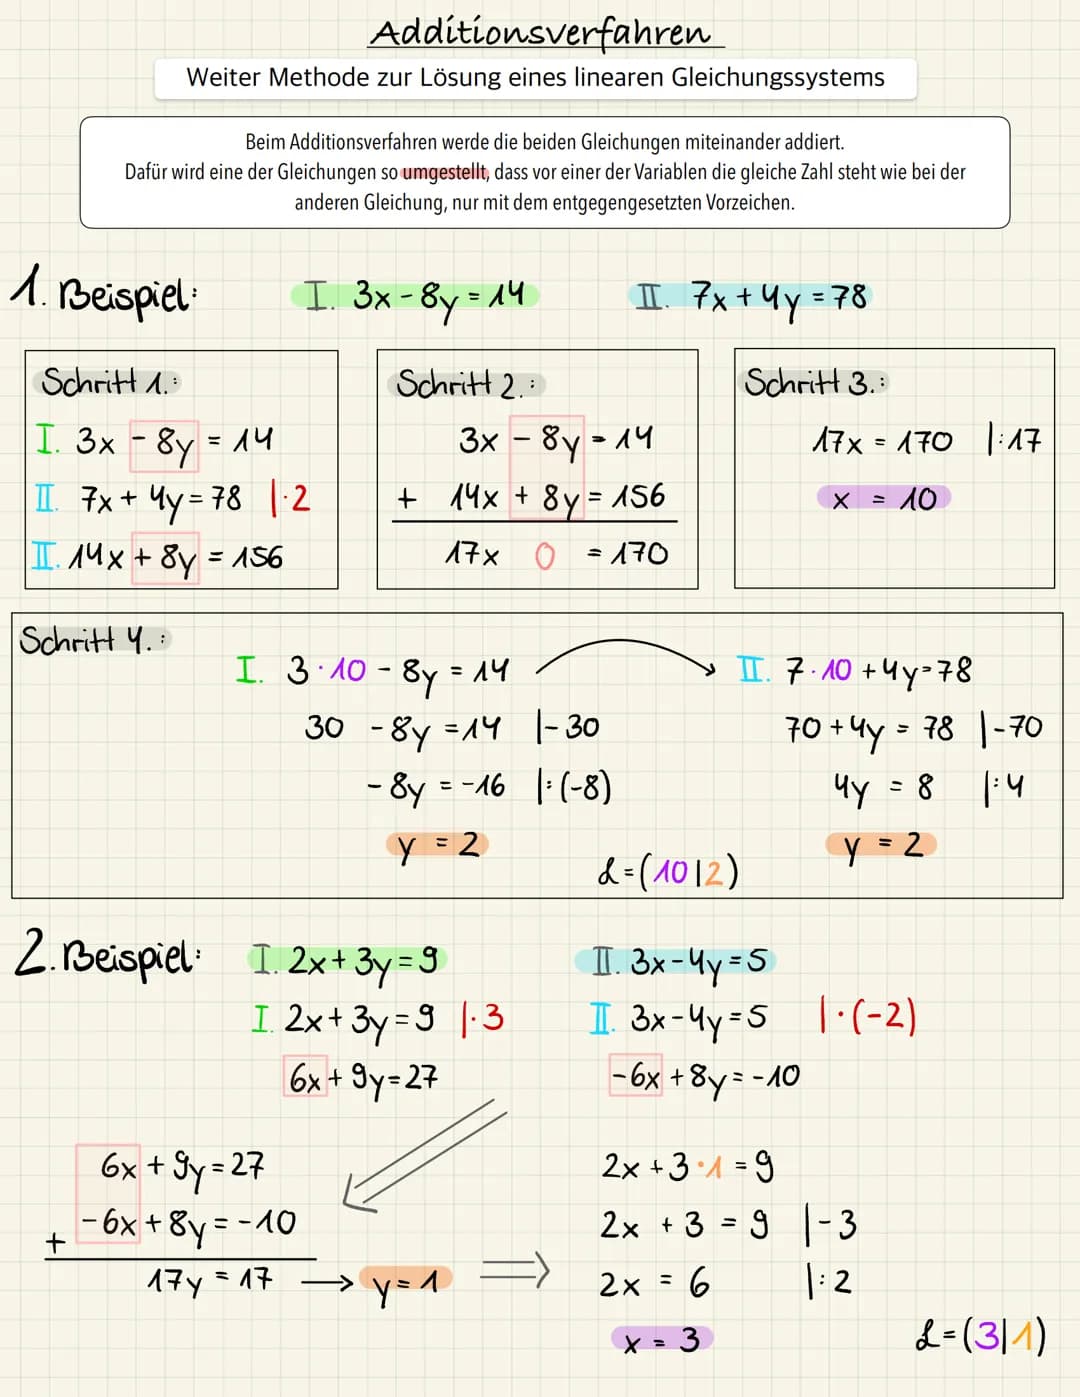 Additionsverfahren
Weiter Methode zur Lösung eines linearen Gleichungssystems
Beim Additionsverfahren werde die beiden Gleichungen miteinander addiert.
Dafür wird eine der Gleichungen so umgestellt, dass vor einer der Variablen die gleiche Zahl steht wie bei der
anderen Gleichung, nur mit dem entgegengesetzten Vorzeichen.
1. Beispiel: I. 3x - 8y = 14 II. 7x + 4y = 78
Schritt 1.:
I. 3x - 8y = 14
II. 7x + 4y = 78 |·2
II. 14x + 8y = 156
Schritt 2.:
3x - 8y = 14
+ 14x + 8y = 156
17x 0 = 170
Schritt 3.:
17x = 170 |:17
x = 10
Schritt 4.:
I. 3·10 - 8y = 14
30 - 8y = 14 |-30
-8y = -16 |:(-8)
y = 2
II. 7·10 + 4y = 78
70 + 4y = 78 |-70
4y = 8 |:4
y = 2
L = (10|2)
2. Beispiel: I. 2x + 3y = 9 II. 3x - 4y = 5
I. 2x + 3y = 9 |·3 II. 3x - 4y = 5 |·(-2)
6x + 9y = 27 -6x + 8y = -10
6x + 9y = 27
+ -6x + 8y = -10
17y = 17 → y = 1 ⇒
2x + 3·1 = 9
2x + 3 = 9 |-3
2x = 6 |:2
x = 3
L = (3|1)